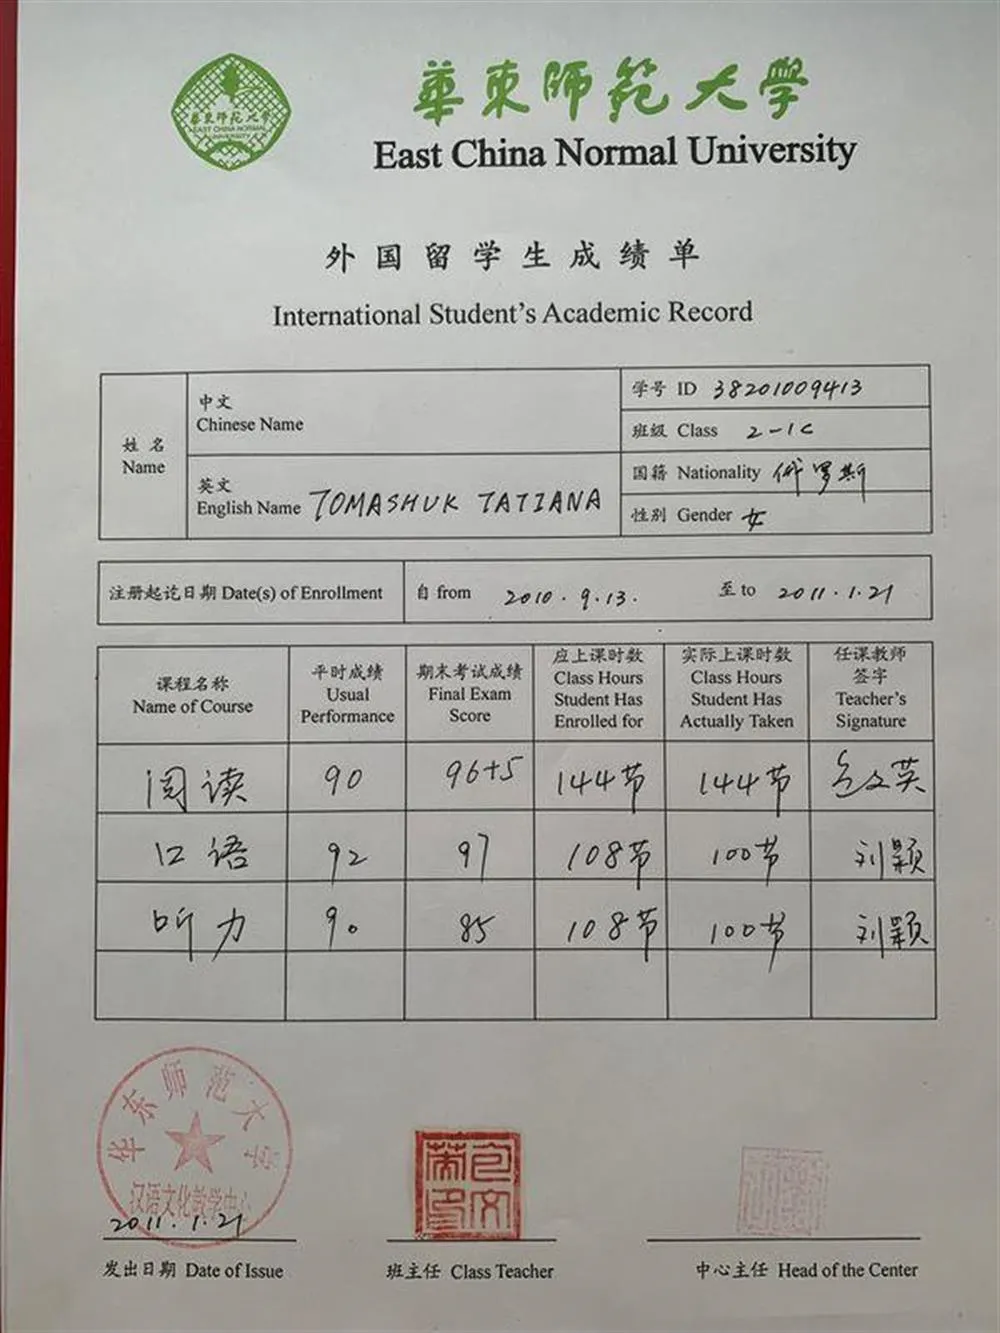 華東師范大學
EAST CHINA NORMAL
UNIVERSITY
華東師范大學
East China Normal University
外国留学生成绩单
International Student's Academic Record
姓名
Name
中文
Chinese Name
英文
English Name TOMASHUK TATIANA
学号 ID 38201009413
班级 Class 2-1C
国籍 Nationality 俄罗斯
性别 Gender 女
注册起讫日期 Date(s) of Enrollment 自 from 2010.9.13. 至 to 2011.1.21
课程名称
Name of Course
平时成绩
Usual
Performance
期末考试成绩
Final Exam
Score
应上课时数
Class Hours
Student Has
Enrolled for
实际上课时数
Class Hours
Student Has
Actually Taken
任课教师
签字
Teacher's
Signature
阅读 90 96+5 144节 144节 包文英
口语 92 97 108节 100节 刘颖
听力 90 85 108节 100节 刘颖
华东师范大学
汉语文化教学中心
2011.1.21
包文英印
发出日期 Date of Issue
班主任 Class Teacher
中心主任 Head of the Center